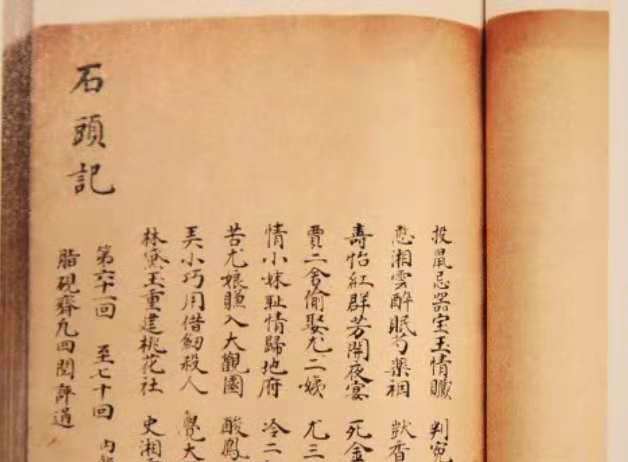 投鼠忌器宝玉情贓 判冤
憨湘雲醉眠芍藥裀 獃香
壽怡紅群芳開夜宴 死金
賈二舍偷娶尤二姨 尤三
情小妹耻情歸地府 冷二
苦尤娘賺入大觀園 酸鳳
弄小巧用借釼殺人 覺大
林黛玉重建桃花社 史湘
石頭記
第六十一回 至七十回 内
脂硯齋凡四閱評過